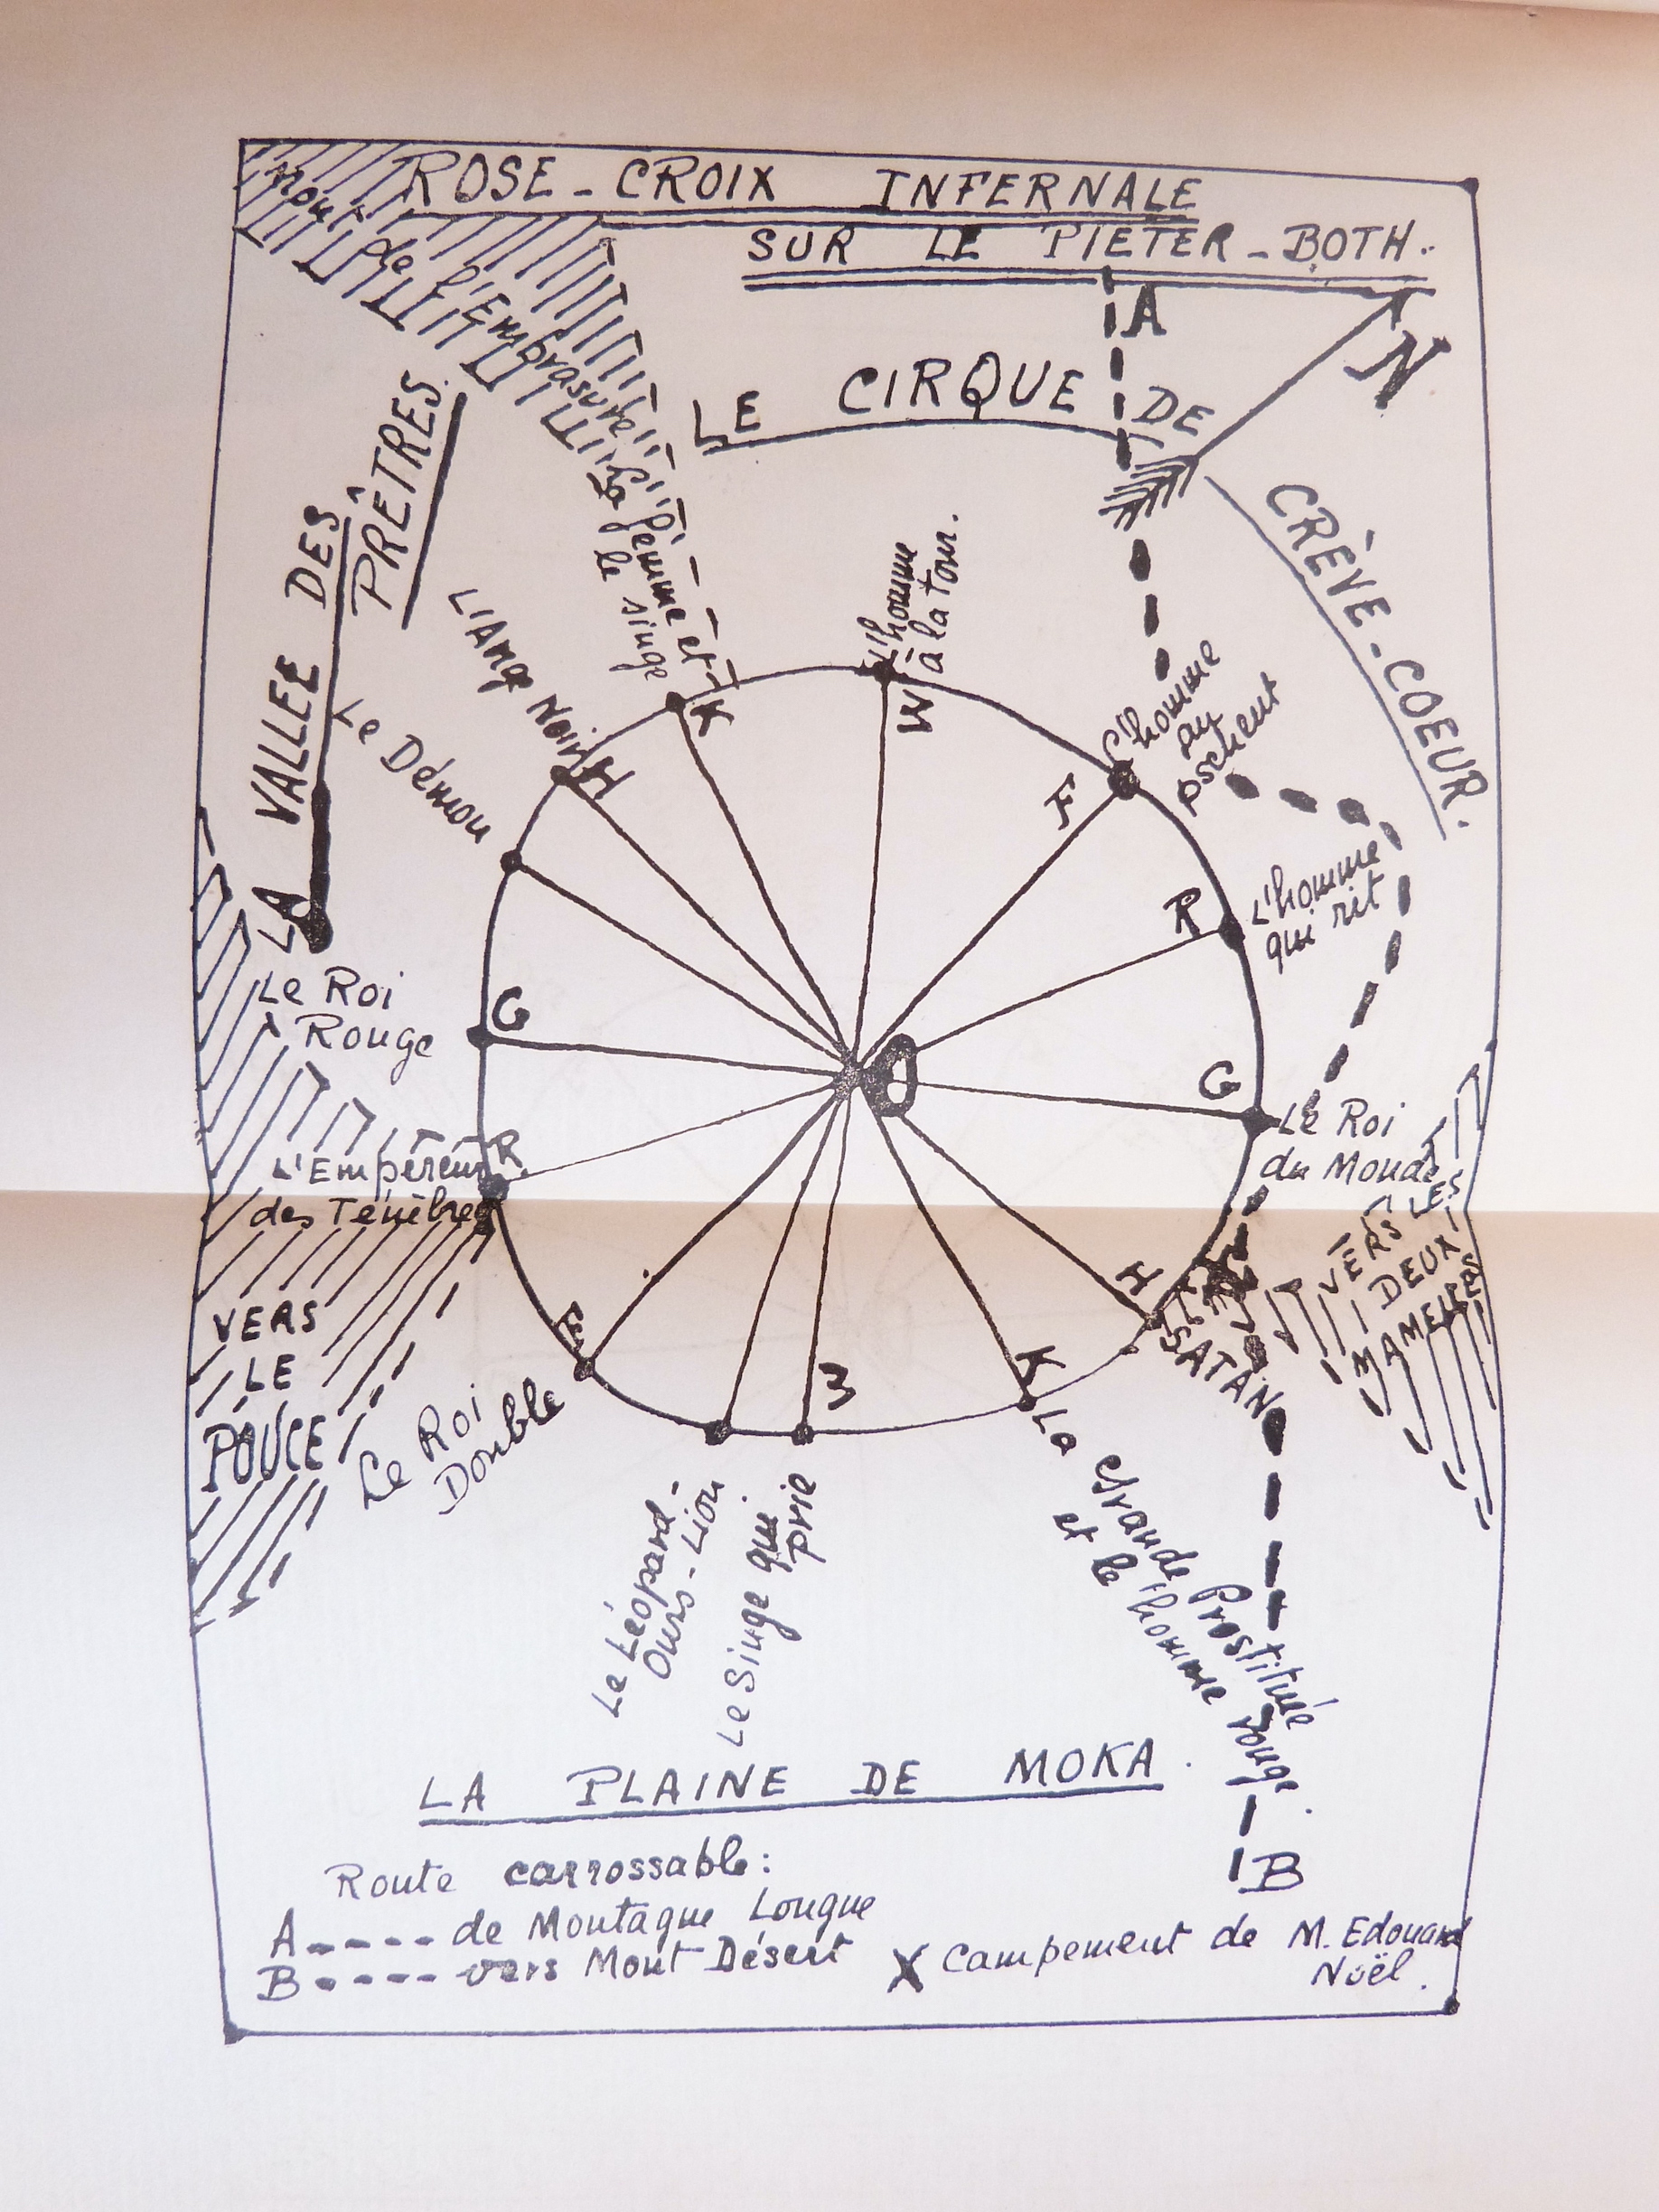 ROSE-CROIX INFERNALE
SUR LE PIETER-BOTH.
Mont de l'Embrasure
A
N
LE CIRQUE DE
CRÈVE-COEUR.
LA VALLEE DES
PRÊTRES.
La femme et
le singe
L'homme
à la tour.
L'Ange Noir
Le Démon
L'homme
au
pschent
L'homme
qui rit
K
W
H
F
R
G
G
O
Le Roi
Rouge
Le Roi
du Monde
R
L'Empereur
des Ténèbres
VERS LES
DEUX
MAMELLES
H
SATAN
VERS
LE
POUCE
F
W
K
Le Roi
Double
Le Léopard-
Ours-Lion
Le Singe qui
prie
La Grande Prostituée
et le l'homme rouge.
LA PLAINE DE MOKA.
B
Route carrossable:
A----- de Montagne Longue
B----- vers Mont Désert
X Campement de M. Edouard
Noël.